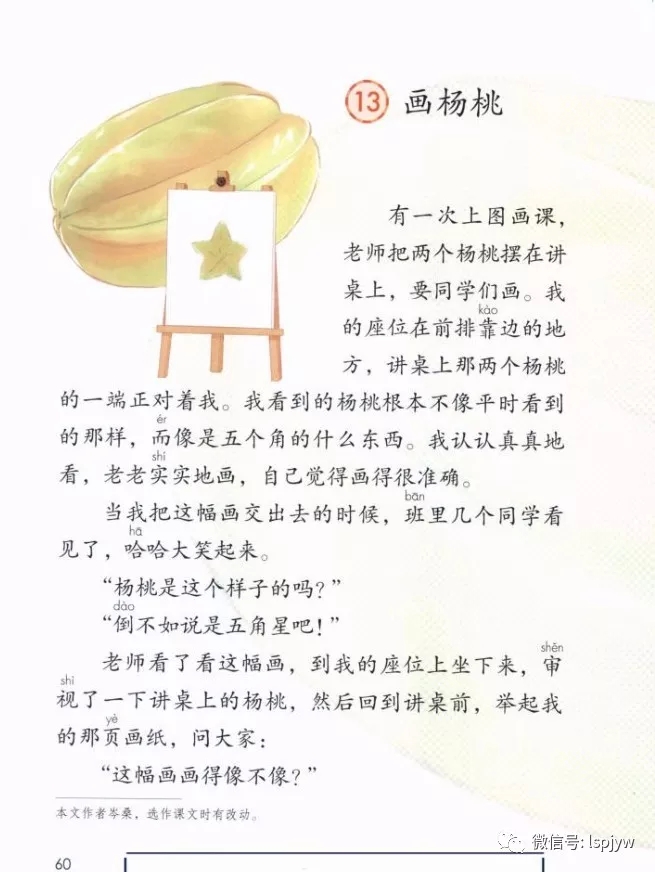 13 画杨桃
有一次上图画课，
老师把两个杨桃摆在讲
桌上，要同学们画。我
kào
的座位在前排靠边的地
方，讲桌上那两个杨桃
的一端正对着我。我看到的杨桃根本不像平时看到
ér
的那样，而像是五个角的什么东西。我认认真真地
shí
看，老老实实地画，自己觉得画得很准确。
bān
当我把这幅画交出去的时候，班里几个同学看
hā
见了，哈哈大笑起来。
“杨桃是这个样子的吗？”
dào
“倒不如说是五角星吧！”
shěn
老师看了看这幅画，到我的座位上坐下来，审
shì
视了一下讲桌上的杨桃，然后回到讲桌前，举起我
yè
的那页画纸，问大家：
“这幅画画得像不像？”
本文作者岑桑，选作课文时有改动。
微信号: lspjyw
60